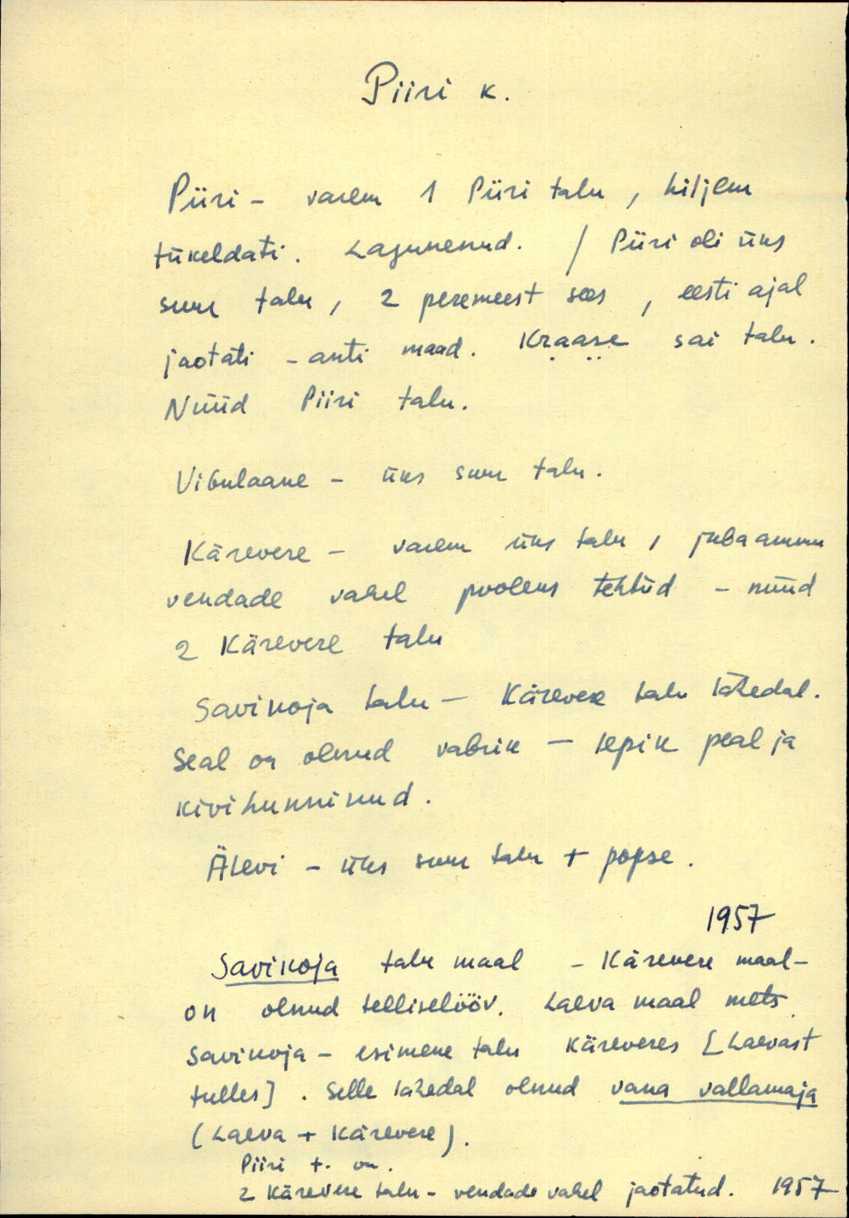 Piiri k.
Piiri - varem 1 Piiri talu, hiljem
tükeldati. Lagunenud. / Piiri oli üks
suur talu, 2 peremeest sees, eesti ajal
jaotati - anti maad. Kraase sai talu.
Nüüd Piiri talu.
Vibulaane - üks suur talu.
Kärevere - varem üks talu, juba ammu
vendade vahel pooleks tehtud - nüüd
2 Kärevere talu
Savikoja talu - Kärevere talu lähedal.
Seal on olnud vabrik - lepik peal ja
kivihunnikud.
Älevi - üks suur talu + popse.
1957
Savikoja talu maal - Kärevere maal -
on olnud telliselööv. Laeva maal mets.
Savikoja - esimene talu Käreveres [Laevast
tulles]. Selle lähedal olnud vana vallamaja
(Laeva + Kärevere).
Piiri t. on.
2 Kärevere talu - vendade vahel jaotatud. 1957